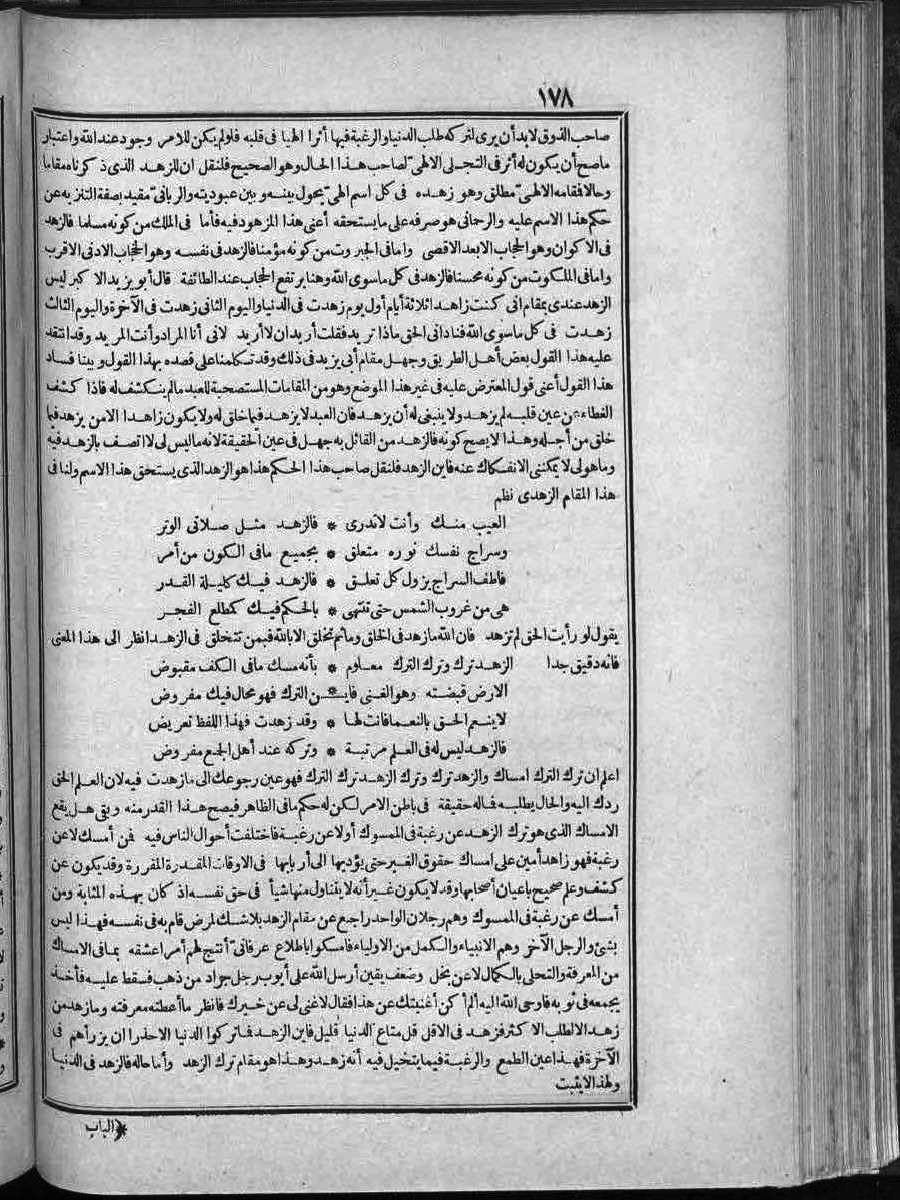 ١٧٨
صاحب الذوق لابد أن يرى لتركه طلب الدنيا والرغبة فيها أثرا الهيا فى قلبه فلولم يكن للامر وجود عند الله واعتبار
ماصح أن يكون له أثر فى التجلى الالهىّ لصاحب هذا الحال وهو الصحيح فلنقل ان للزهد الذى ذكرناه مقاما
وحالا فقامه الالهىّ مطلق وهو زهده فى كل اسم الهىّ يحول بينه وبين عبوديته والربانىّ مقيد بصفة التنزيه عن
حكم هذا الاسم عليه والرحمانى هو صرفه على مايستحقه أعنى هذا المزهود فيه فأما فى الملك من كونه مسلما فالزهد
فى الاكوان وهو الحجاب الابعد الاقصى وأما فى الجبروت من كونه مؤمنا فالزهد فى نفسه وهو الحجاب الادنى الاقرب
وأما فى الملكوت من كونه محسنا فالزهد فى كل ماسوى الله وهنا يرتفع الحجاب عند الطائفة قال أبو يزيد الاكبر ليس
الزهد عندى بمقام انى كنت زاهدا ثلاثة أيام أول يوم زهدت فى الدنيا واليوم الثانى زهدت فى الآخرة واليوم الثالث
زهدت فى كل ماسوى الله فنادانى الحق ماذا تريد فقلت أريد ان لا أريد لانى أنا المراد وأنت المريد وقد انتقد
عليه هذا القول بعض أهل الطريق وجهل مقام أبى يزيد فى ذلك وقد تكلمنا على قصده بهذا القول وبينا فساد
هذا القول أعنى قول المعترض عليه فى غير هذا الموضع وهو من المقامات المستصحبة للعبد مالم ينكشف له فاذا كشف
الغطاء عن عين قلبه لم يزهد ولا ينبغى له أن يزهد فان العبد لا يزهد فيما خلق له ولا يكون زاهدا الا من يزهد فيما
خلق من أجله وهذا لا يصح كونه فالزهد من القائل به جهل فى عين الحقيقة لانه ماليس لى لا اتصف بالزهد فيه
وماهو لى لا يمكننى الانفكاك عنه فاين الزهد فلنقل صاحب هذا الحكم هذا هو الزهد الذى يستحق هذا الاسم ولنا فى
هذا المقام الزهدى نظم
العيب منك وأنت لا تدرى * فالزهد مثل صلاتى الوتر
وسراج نفسك نوره متعلق * بجميع مافى الكون من أمر
فاطف السراج يزول كل تعلق * فالزهد فيك كليلة القدر
هى من غروب الشمس حتى تنتهى * بالحكم فيك كمطلع الفجر
يقول لو رأيت الحق لم تزهد فان الله مازهد فى الخلق وماثم تخلق الا بالله فبمن تتخلق فى الزهد انظر الى هذا المعنى
فانه دقيق جدا الزهد ترك وترك الترك معلوم * بأنه مسك مافى الكف مقبوض
الارض قبضته وهو الغنى فايـ * ـن الترك فهو محال فيك مفروض
لا ينعم الحق بالنعما فانت لها * وقد زهدت فهذا اللفظ تعريض
فالزهد ليس له فى العلم مرتبة * وتركه عند أهل الجمع مفروض
اعلم ان ترك الترك امساك والزهد ترك وترك الزهد ترك الترك فهو عين رجوعك الى مازهدت فيه لان العلم الحق
ردك اليه والحال يطلبه فما له حقيقة فى باطن الامر لكن له حكم مافى الظاهر فيصح هذا القدر منه وبقى هل يقع
الامساك الذى هو ترك الزهد عن رغبة فى الممسوك أولا عن رغبة فاختلفت أحوال الناس فيه فمن أمسك لا عن
رغبة فهو زاهد أمين على امساك حقوق الغير حتى يؤديها الى أربابها فى الاوقات المقدرة المقررة وقد يكون عن
كشف وعلم صحيح باعيان أصحابها وقد لا يكون غير أنه لا يتناول منها شيأ فى حق نفسه اذ كان بهذه المثابة ومن
أمسك عن رغبة فى الممسوك وهم رجلان الواحد راجع عن مقام الزهد بلا شك لمرض قام به فى نفسه فهذا ليس
بشئ والرجل الآخر وهم الانبياء والكمل من الاولياء فامسكوا باطلاع عرفانىّ أنتج لهم أمرا عشقه بما فى الامساك
من المعرفة والتحلى بالكمال لا عن بخل وضعف يقين أرسل الله على أيوب رجل جراد من ذهب فسقط عليه فأخذ
يجمعه فى ثوبه فاوحى الله اليه ألم أكن أغنيتك عن هذا فقال لا غنى لى عن خيرك فانظر ما أعطته معرفته ومازهد من
زهد الا لطلب الاكثر فزهد فى الاقل قل متاع الدنيا قليل فاين الزهد فما تركوا الدنيا الا حذرا ان يرزأهم فى
الآخرة فهذا عين الطمع والرغبة فيما يتخيل فيه أنه زهد وهذا هو مقام ترك الزهد وأما حاله فالزهد فى الدنيا
ولهذا لا يثبت
﴿الباب